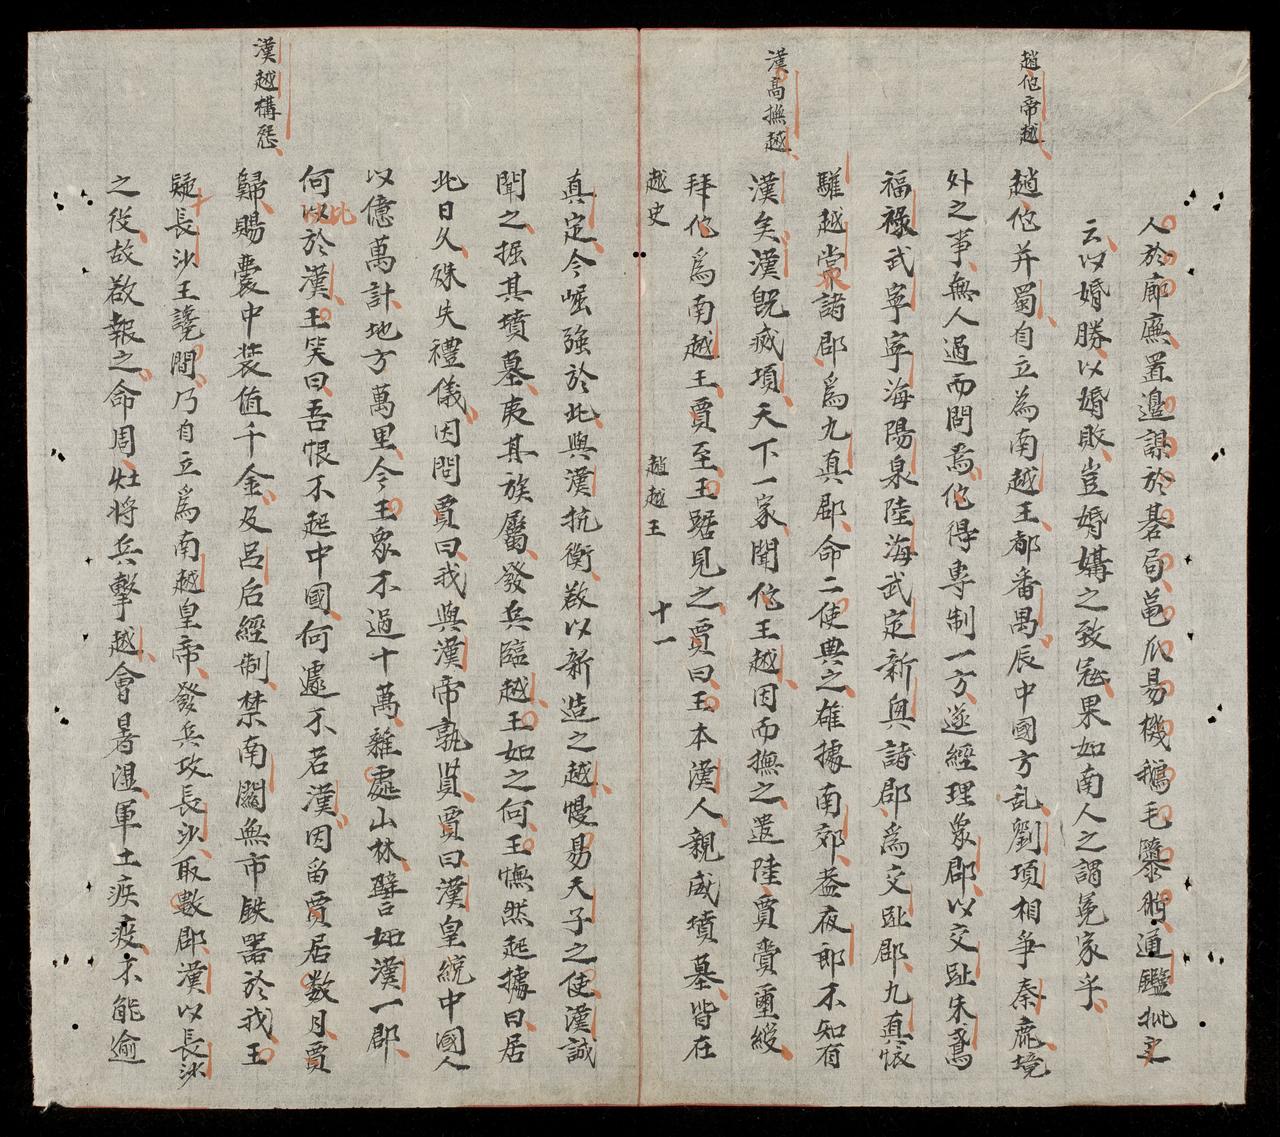 趙佗帝越
漢高撫越
漢越構怒
人於廊廡置邊謀於碁局黽爪易機鵝毛隳術通鑑批
云以婚勝以婚敗豈婚媾之致寇果如南人之謂冤家乎
趙佗并蜀自立為南越王都番禺辰中國方乱劉項相爭秦鹿境
外之事無人過而問焉佗得專制一方遂經理象郡以交趾朱鳶
福祿武寧寧海陽泉陸海武定新興諸郡爲交趾郡九真懷
驩越裳諸郡爲九真郡命二使典之雄據南郊益夜郎不知有
漢矣漢既滅項天下一家聞佗王越因而撫之遣陸賈賫璽綬
拜佗爲南越王賈至王踞見之賈曰王本漢人親戚墳墓皆在
越史 趙越王 十一
真定今崛強於此與漢抗衡敢以新造之越慢易天子之使漢誠
聞之掘其墳墓夷其族屬發兵臨越王如之何王憮然起據曰居
此日久殊失禮儀因問賈曰我與漢帝孰賢賈曰漢皇統中國人
以億萬計地方萬里今王眾不過十萬雜處山林譬如漢一郡
何以比於漢王笑曰吾恨不起中國何遽不若漢因留賈居数月賈
歸賜囊中装值千金及呂后經制禁南關無市鉄器於我王
疑長沙王讒間乃自立爲南越皇帝發兵攻長沙取數郡漢以長沙
之役故敢報之命周灶将兵擊越會暑湿軍士疾疫不能逾